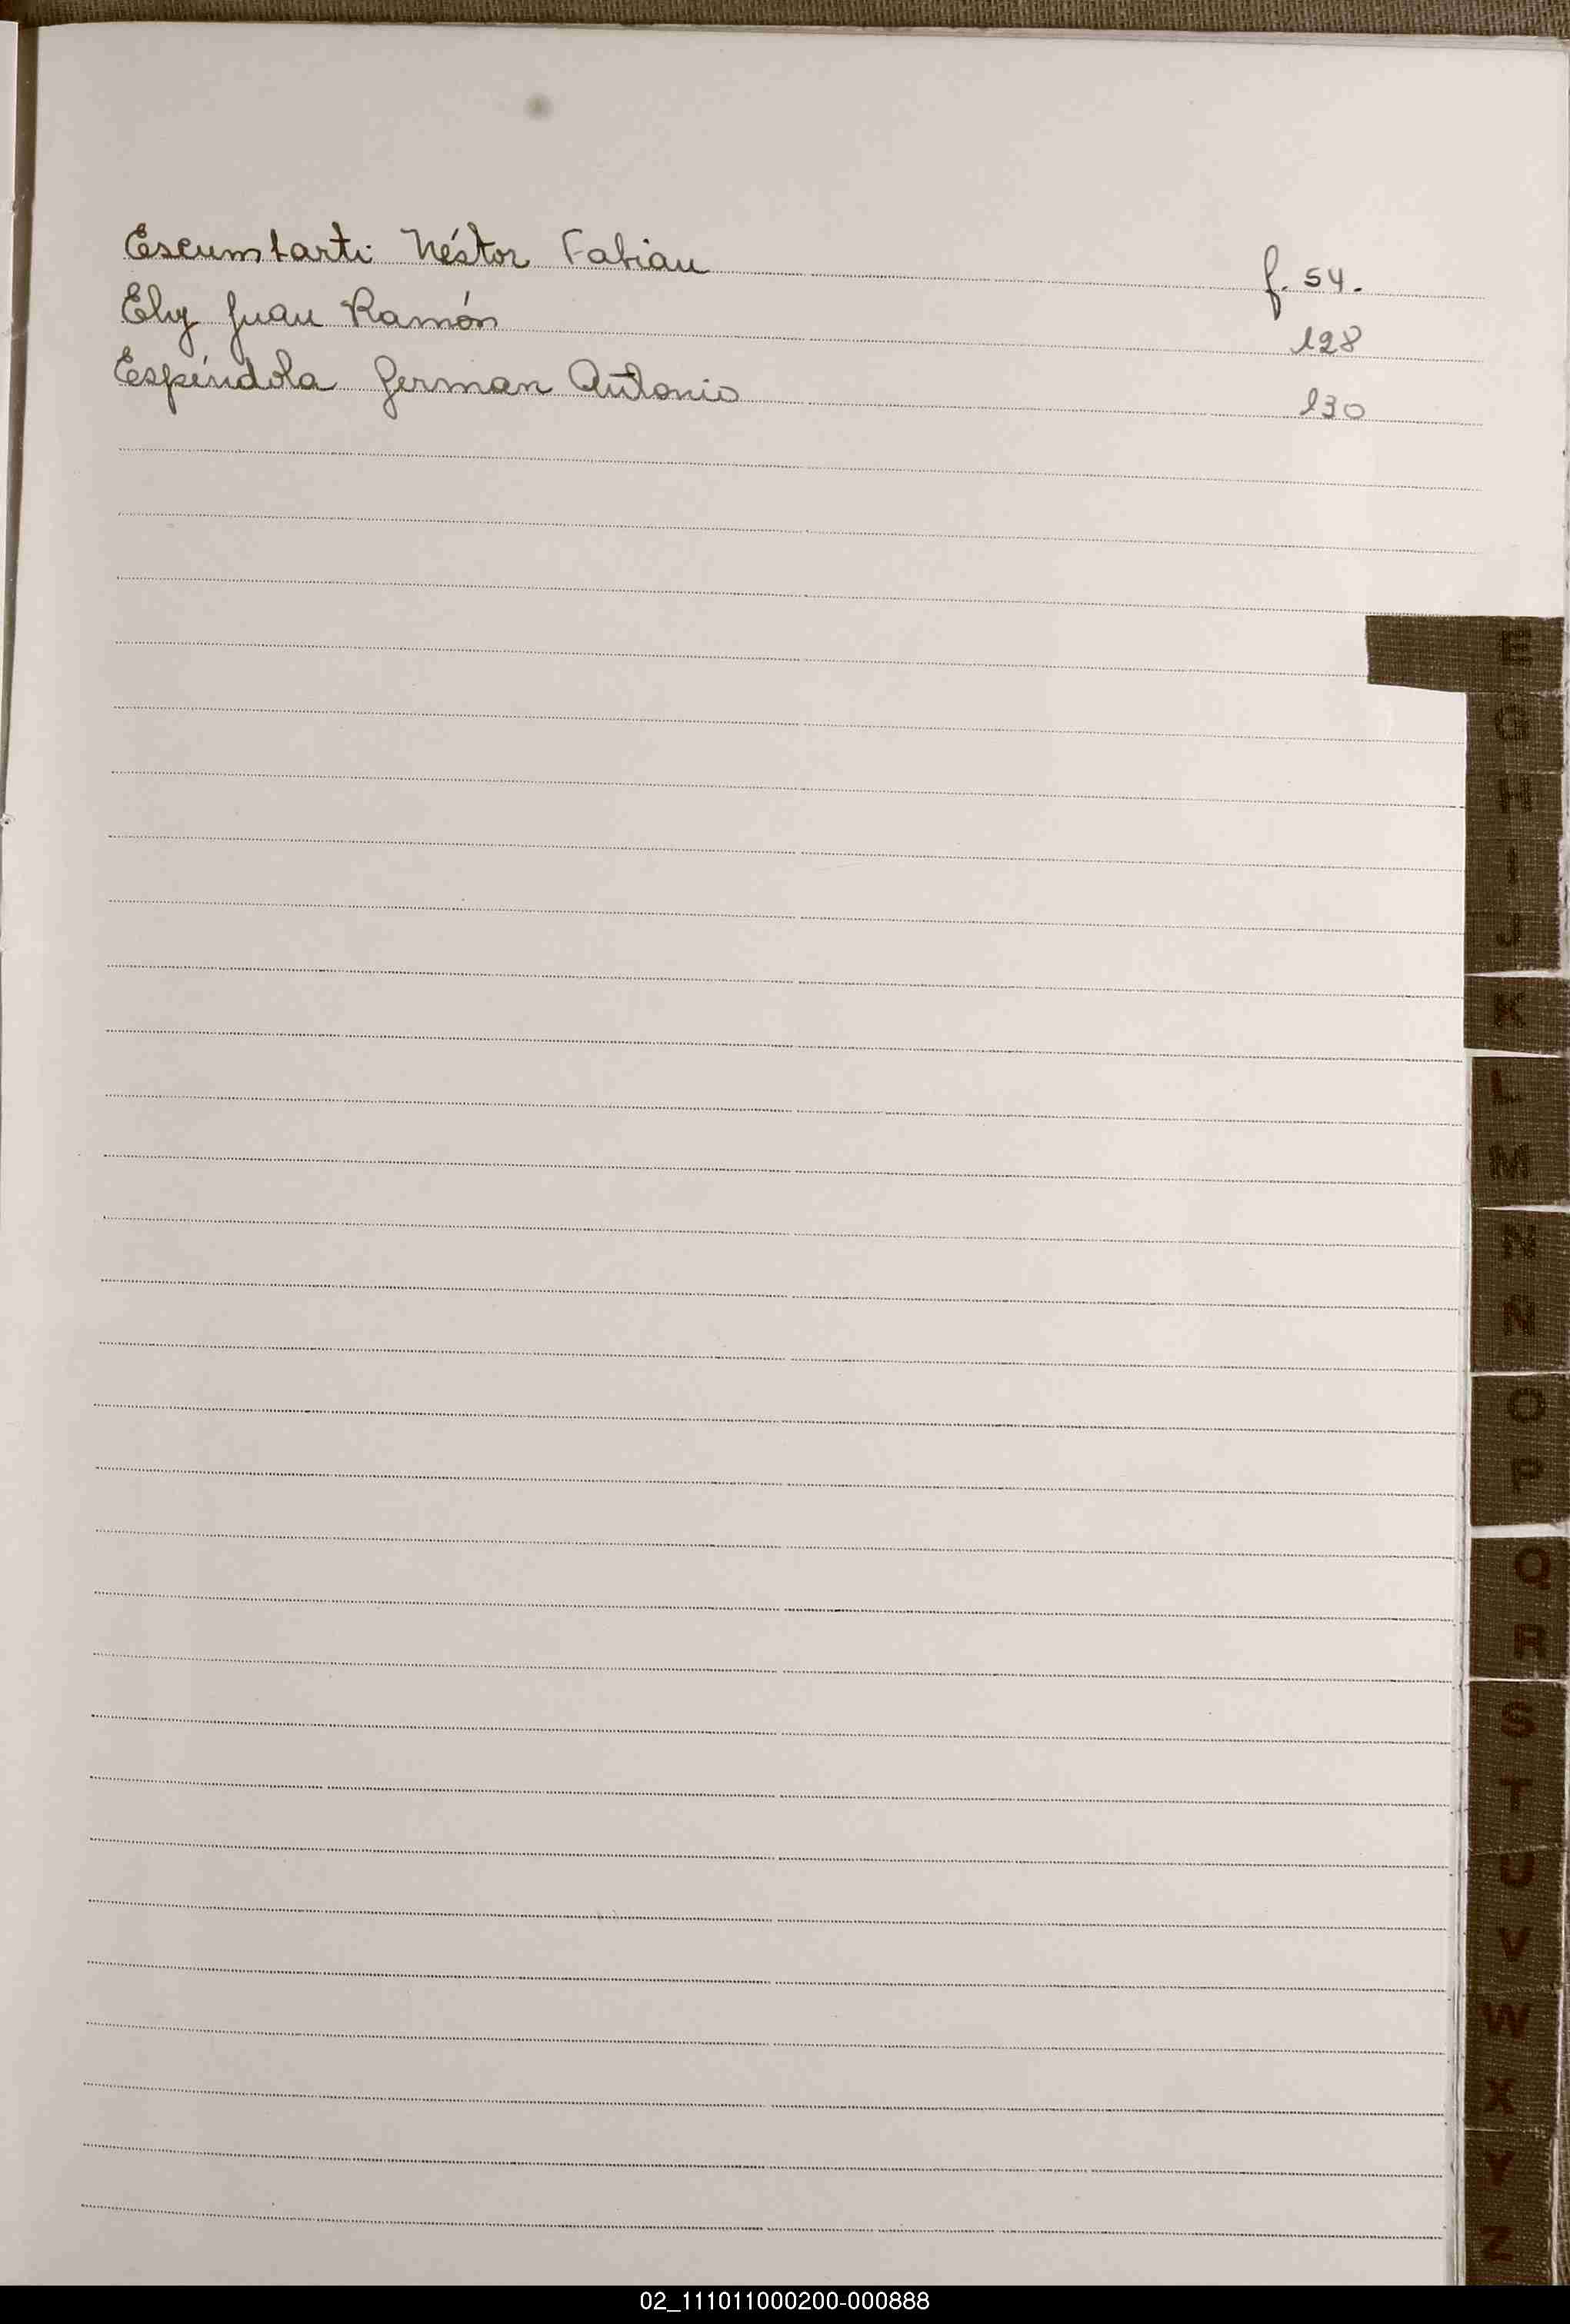 Escumbarti Néstor Fabian f. 54.
Ely Juan Ramón 128
Espíndola German Antonio 130
E
G
H
I
J
K
L
M
N
N
O
P
Q
R
S
T
U
V
W
X
Y
Z
02_111011000200-000888